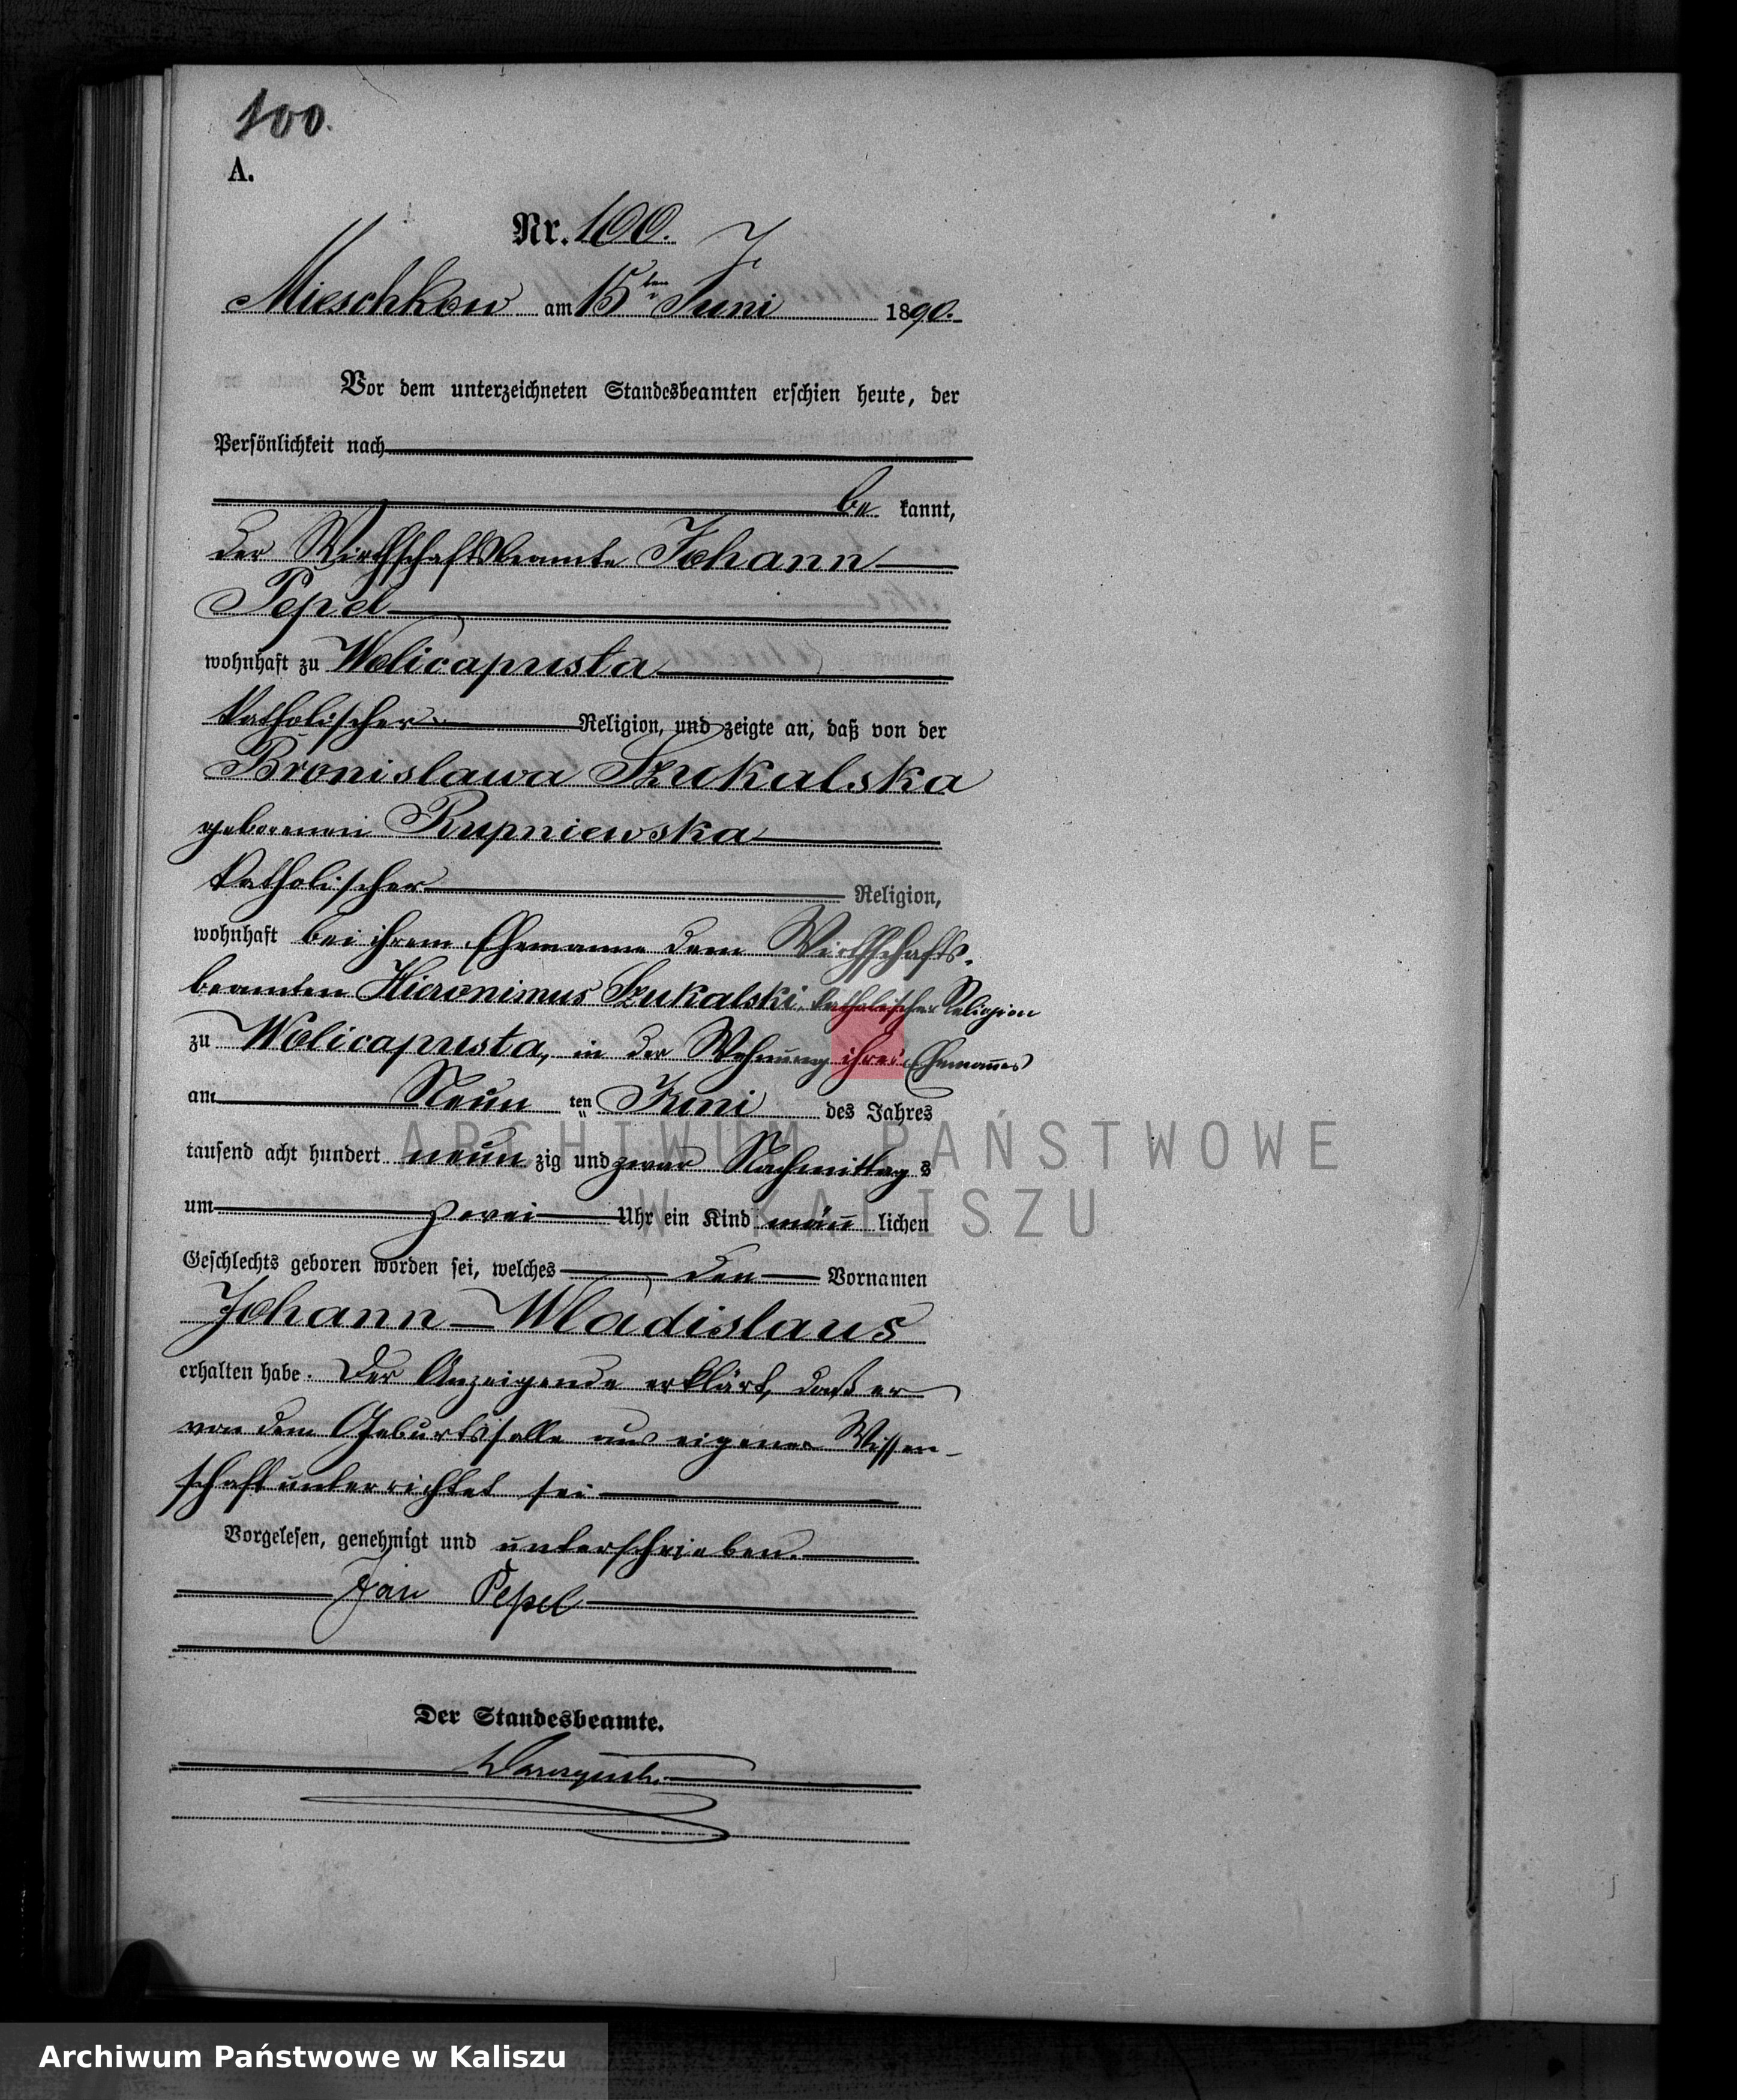 100.
A.
Nr. 100.
Mieschkow am 15ten Juni 1890.
Vor dem unterzeichneten Standesbeamten erschien heute, der
Persönlichkeit nach
be kannt,
der Wirthschaftsbeamte Johann
Pepel
wohnhaft zu Wolicapusta
katholischer Religion, und zeigte an, daß von der
Bronislawa Szukalska
geborenen Rupniewska
katholischer Religion,
wohnhaft bei ihrem Ehemanne dem Wirthschafts-
beamten Hieronimus Szukalski katholischer Religion
zu Wolicapusta, in der Wohnung ihres Ehemannes
am Neun ten Juni des Jahres
tausend acht hundert neun zig und zwar Nachmittag s
um zwei Uhr ein Kind männ lichen
Geschlechts geboren worden sei, welches den Vornamen
Johann Wladislaus
erhalten habe. Der Anzeigende erklärt, daß er
von dem Geburtsfalle aus eigener Wissen-
schaft unterrichtet sei
Vorgelesen, genehmigt und unterschrieben.
Jan Pepel
Der Standesbeamte.
ARCHIWUM PAŃSTWOWE
W KALISZU
Archiwum Państwowe w Kaliszu